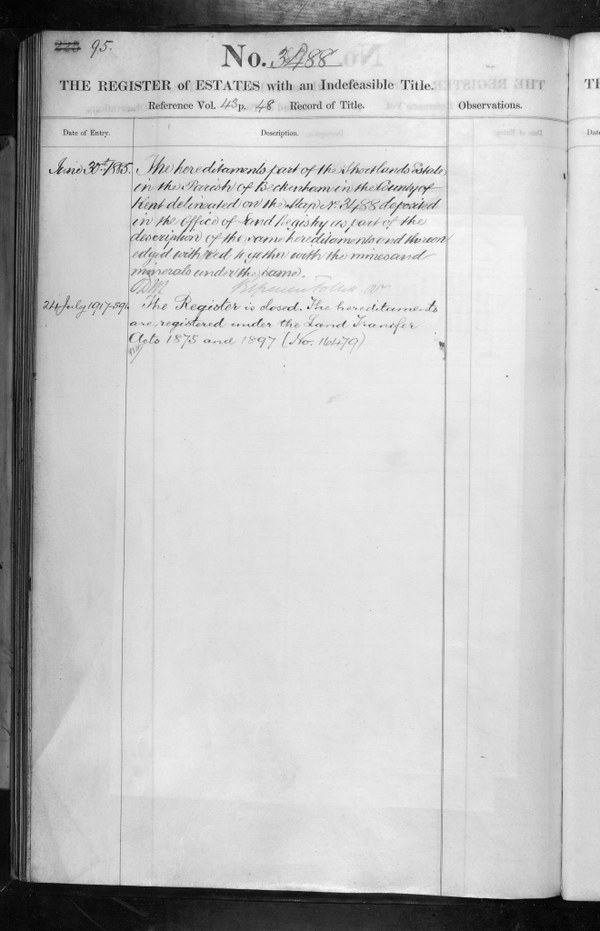 95.
No. 3488
THE REGISTER of ESTATES with an Indefeasible Title.
Reference Vol. 43 p. 48 Record of Title.
Observations.
Date of Entry.
Description.
June 30th 1885.
The hereditaments part of the Shortlands Estate
in the Parish of Beckenham in the County of
Kent delineated on the Map No. 3488 deposited
in the Office of Land Registry as part of the
description of the same hereditaments and thereon
edged with red together with the mines and
minerals under the same.
24 July 1917
The Register is closed. The hereditaments
are registered under the Land Transfer
Acts 1875 and 1897 (No. 16479)